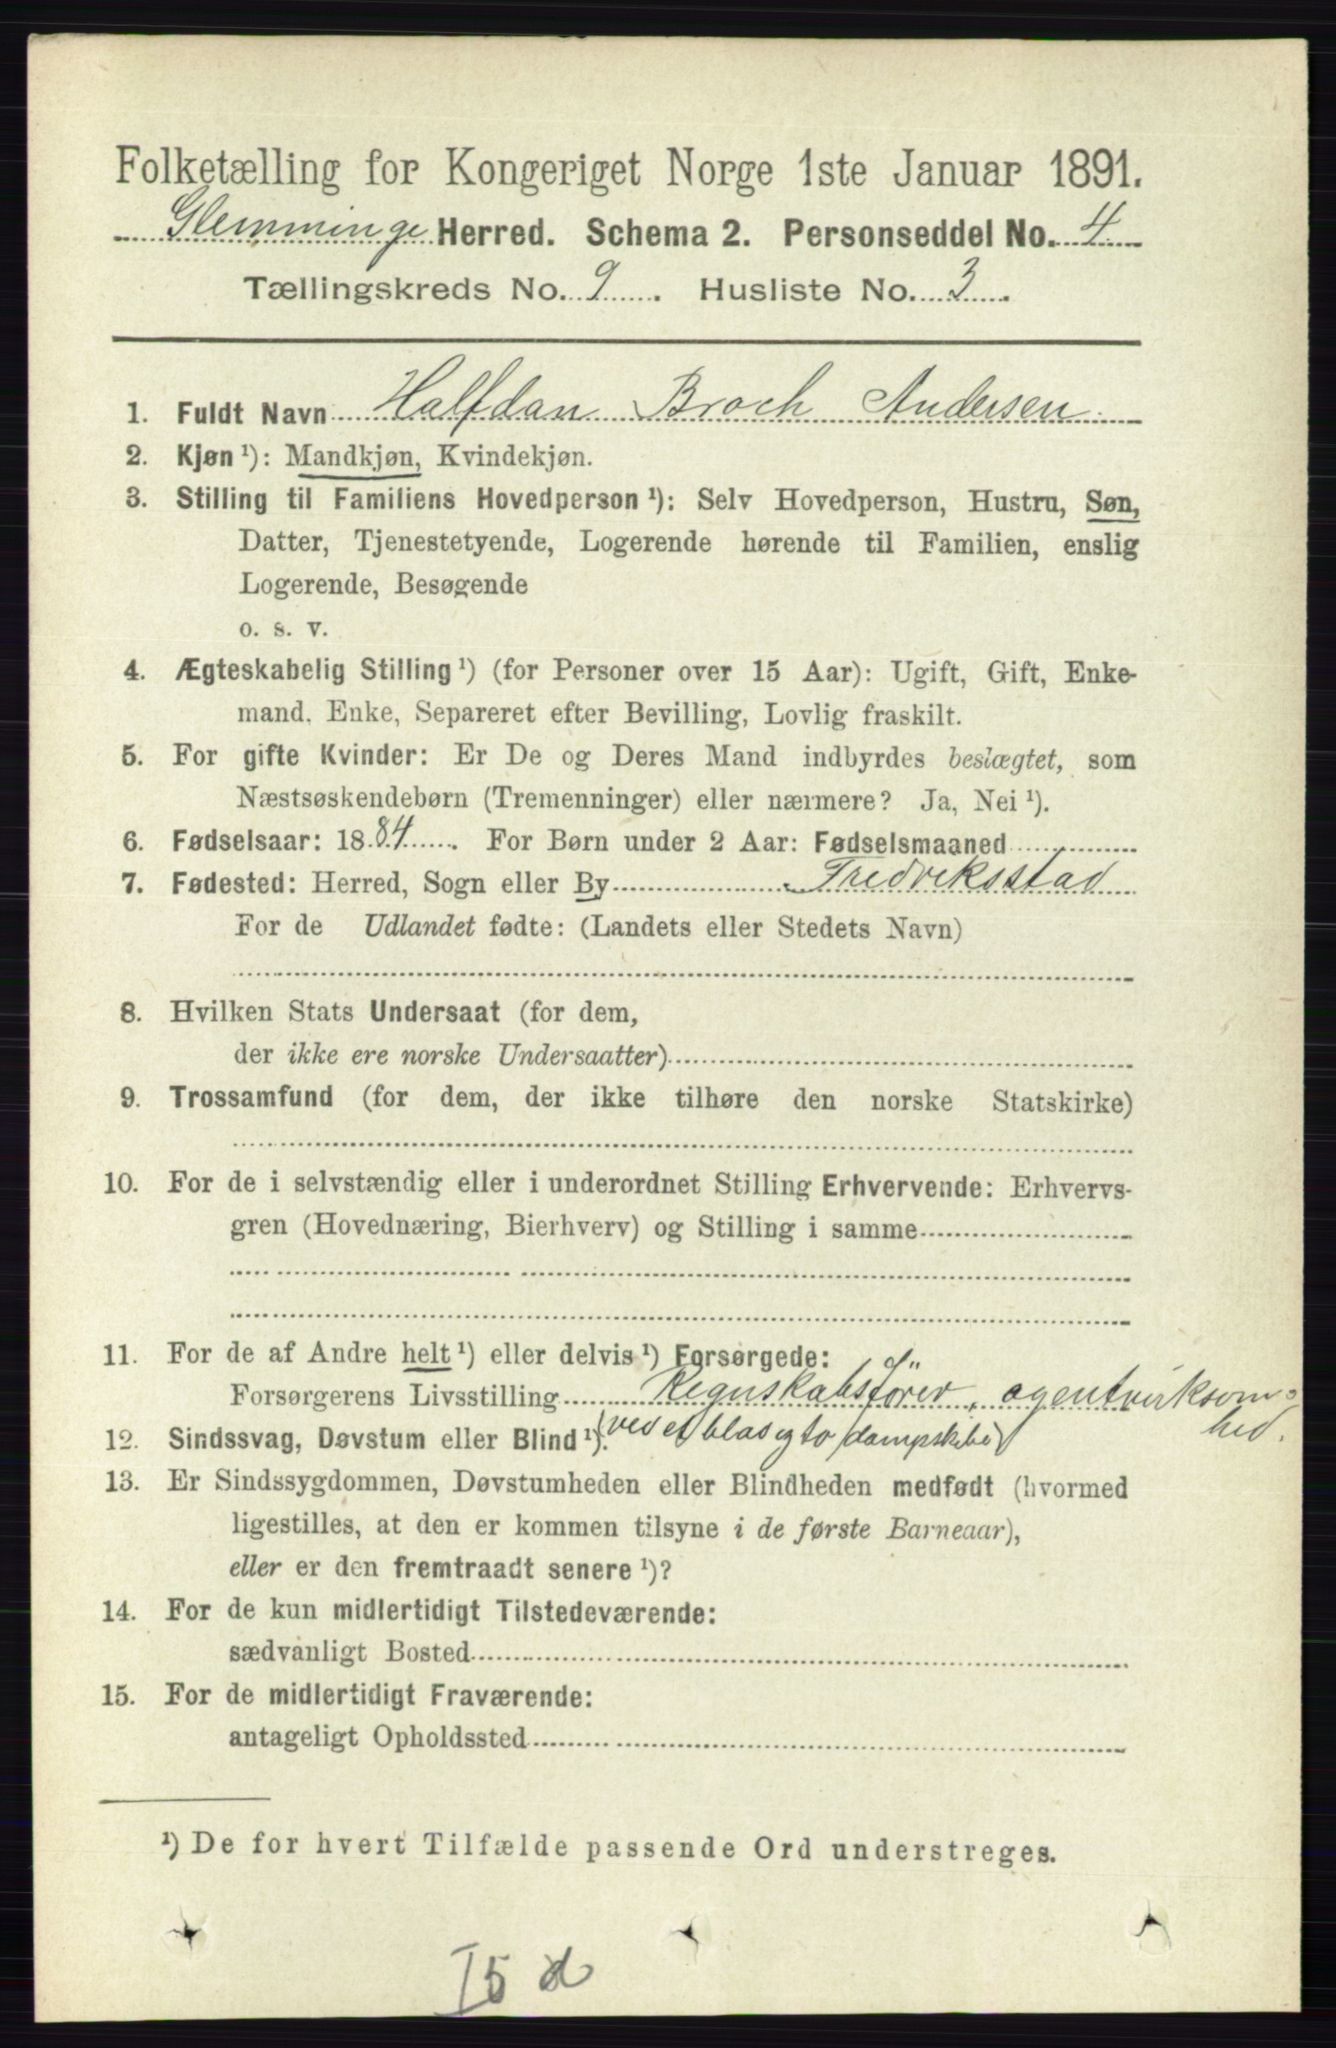 Folketælling for Kongeriget Norge 1ste Januar 1891.
Glemminge Herred. Schema 2. Personseddel No. 4
Tællingskreds No. 9. Husliste No. 3.
1. Fuldt Navn Halfdan Broch Andersen
2. Kjøn ¹): Mandkjøn, Kvindekjøn.
3. Stilling til Familiens Hovedperson ¹): Selv Hovedperson, Hustru, Søn,
Datter, Tjenestetyende, Logerende hørende til Familien, enslig
Logerende, Besøgende
o. s. v.
4. Ægteskabelig Stilling ¹) (for Personer over 15 Aar): Ugift, Gift, Enke-
mand, Enke, Separeret efter Bevilling, Lovlig fraskilt.
5. For gifte Kvinder: Er De og Deres Mand indbyrdes beslægtet, som
Næstsøskendebørn (Tremenninger) eller nærmere? Ja, Nei ¹).
6. Fødselsaar: 1884. For Børn under 2 Aar: Fødselsmaaned
7. Fødested: Herred, Sogn eller By Fredriksstad
For de Udlandet fødte: (Landets eller Stedets Navn)
8. Hvilken Stats Undersaat (for dem,
der ikke ere norske Undersaatter)
9. Trossamfund (for dem, der ikke tilhøre den norske Statskirke)
10. For de i selvstændig eller i underordnet Stilling Erhvervende: Erhvervs-
gren (Hovednæring, Bierhverv) og Stilling i samme
11. For de af Andre helt ¹) eller delvis ¹) Forsørgede:
Forsørgerens Livsstilling Regnskabsförer, agentvirksom-
hed.
12. Sindssvag, Døvstum eller Blind ¹). (ved et dampskibe)
13. Er Sindssygdommen, Døvstumheden eller Blindheden medfødt (hvormed
ligestilles, at den er kommen tilsyne i de første Barneaar),
eller er den fremtraadt senere ¹)?
14. For de kun midlertidigt Tilstedeværende:
sædvanligt Bosted
15. For de midlertidigt Fraværende:
antageligt Opholdssted
¹) De for hvert Tilfælde passende Ord understreges.
I5 d